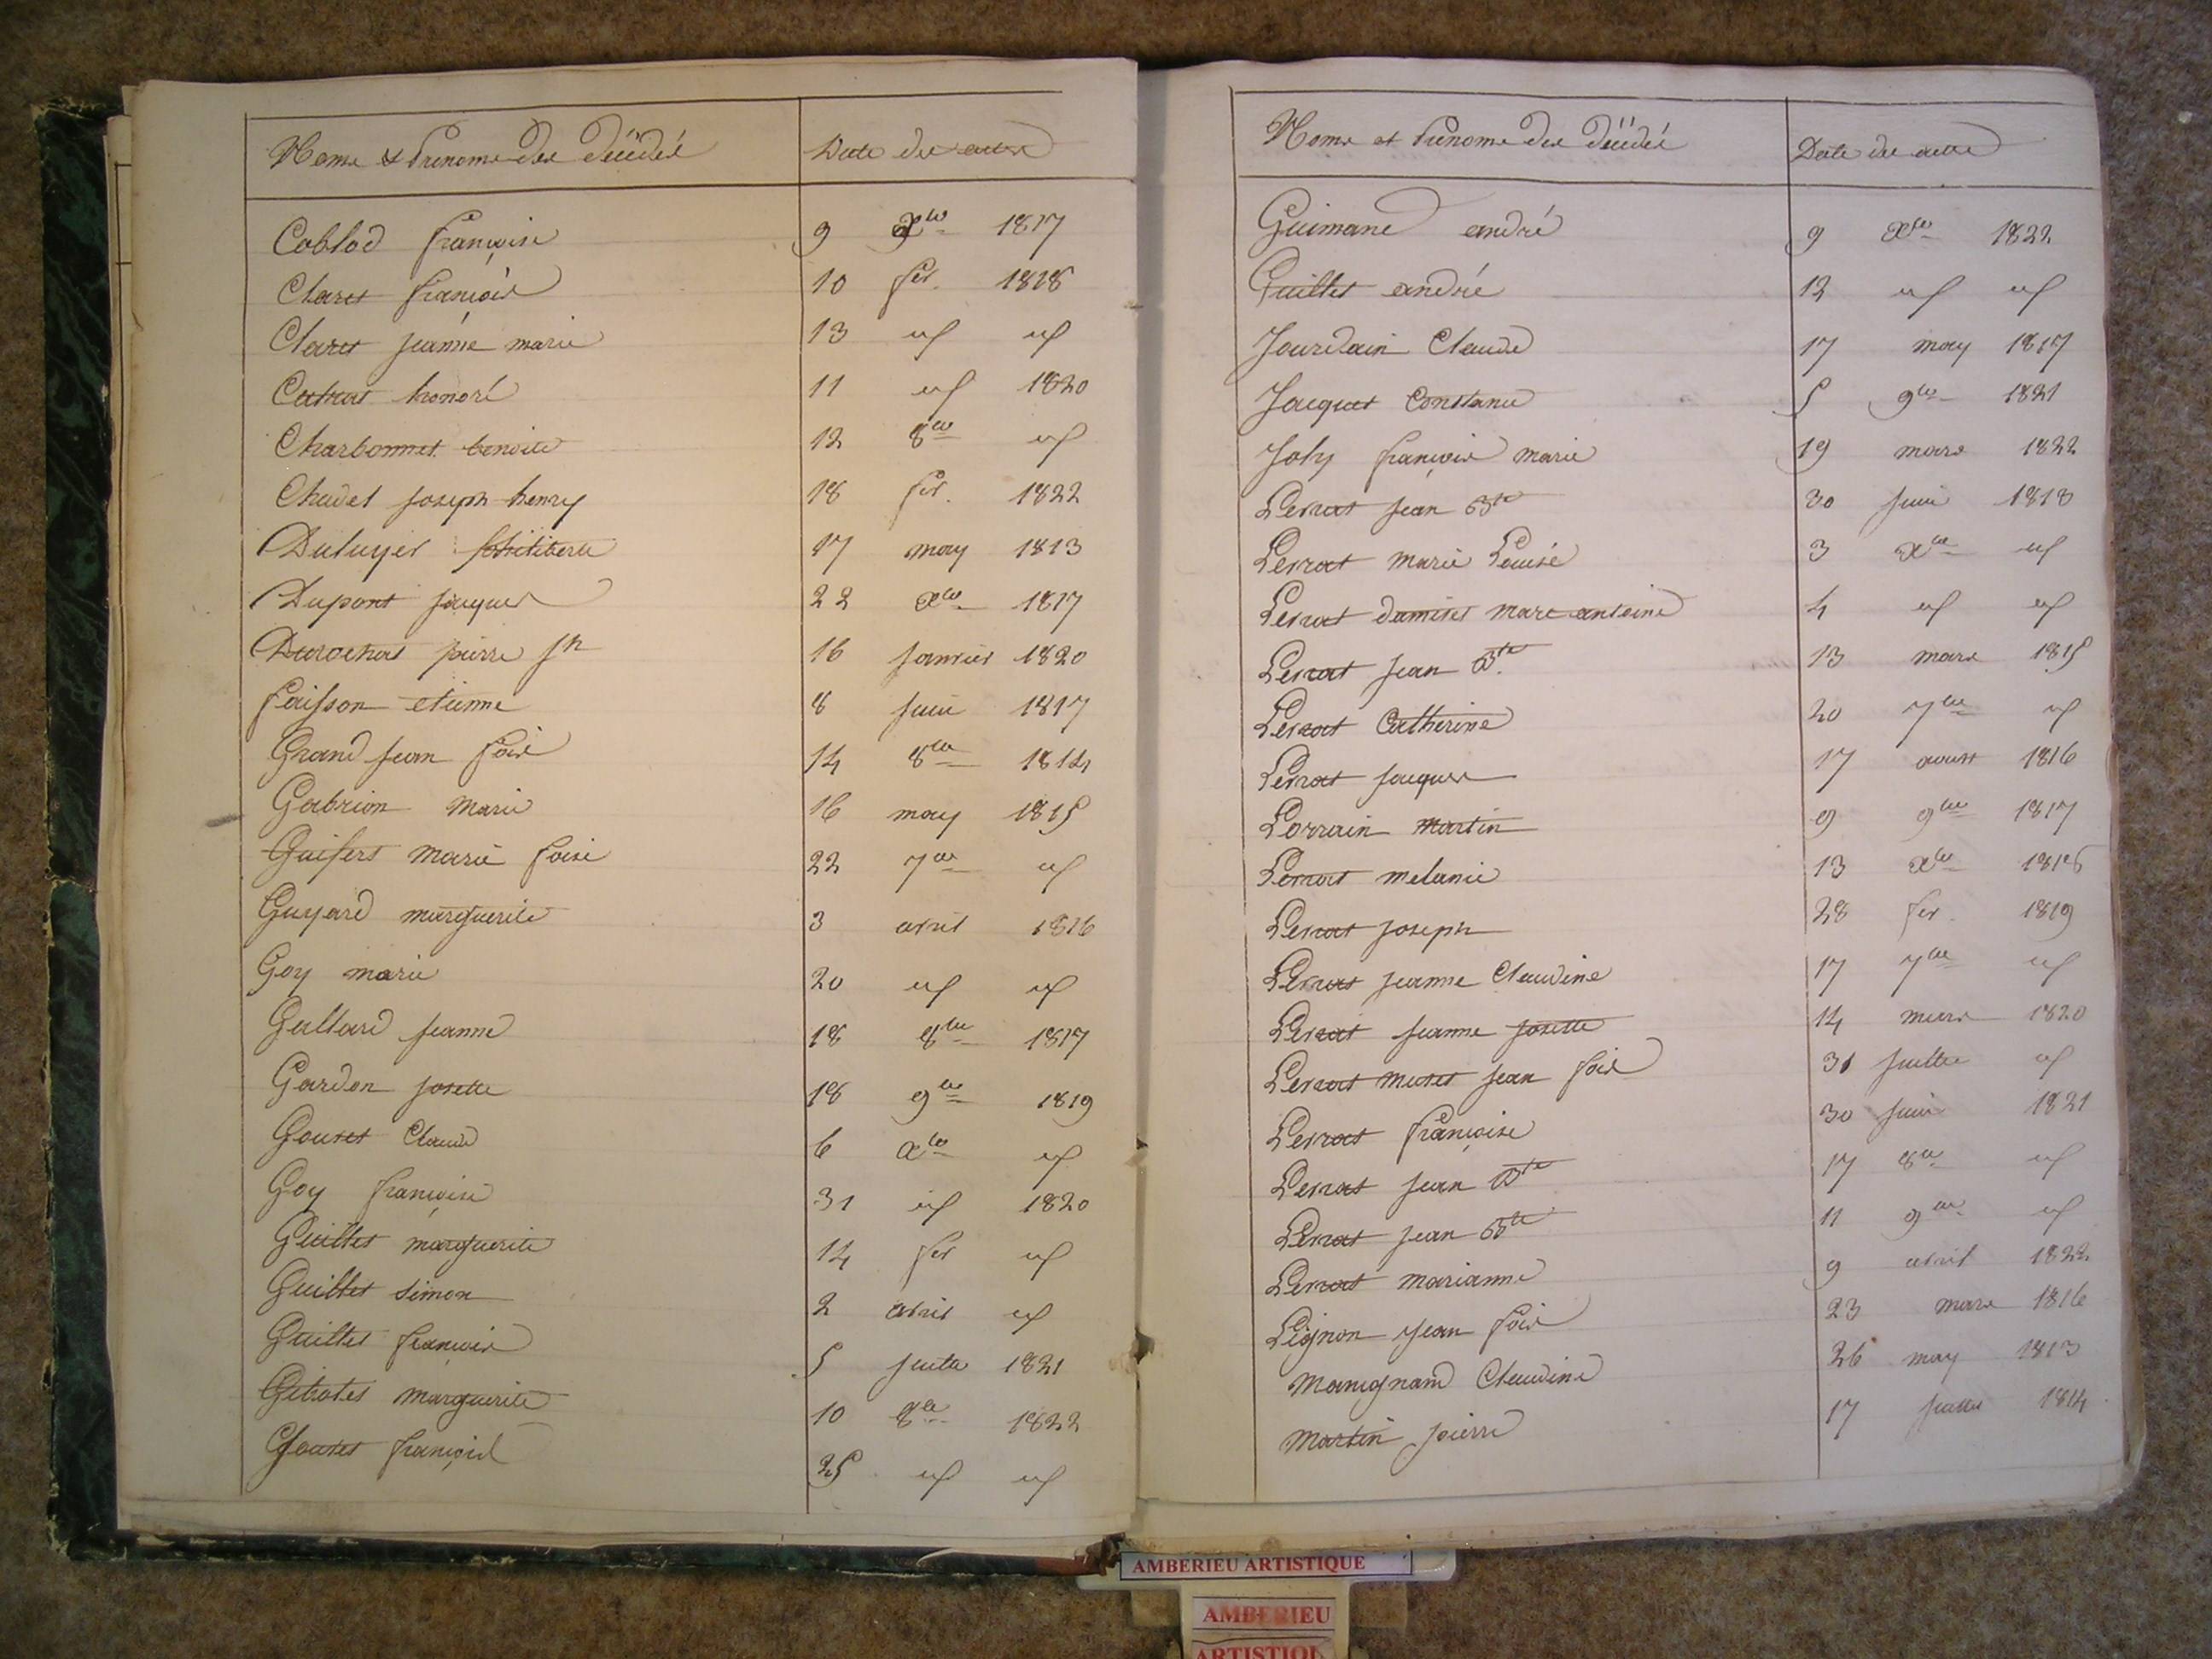 Noms & Prénoms des décédés Date des actes
Coblod françoise 9 Xbre 1817
Claret françois 10 fev. 1818
Claret jeanne marie 13 id id
Catinat honoré 11 id 1820
Charbonnet benoite 12 8bre id
Chudet joseph henry 18 fev. 1822
Duluyer philiberte 17 may 1813
Dupont jacques 22 Xbre 1817
Durochat pierre jh 16 janvier 1820
faisson etienne 8 juin 1817
Grand jean fois 14 8bre 1814
Gabrion marie 16 may 1815
marie foise 22 7bre id
Guyard marguerite 3 avril 1816
Goy marie 20 id id
Gallard jeanne 18 8bre 1817
Gardon josette 18 9bre 1819
Gouret Claude 6 Xbre id
Goy françoise 31 id 1820
Guillet marguerite 14 fev id
Guillet simon 2 avril id
Guillet françois 5 juillet 1821
marguerite 10 8bre 1822
Gouret françois 25 id id
Noms et Prénoms des décédés Date des actes
Guimand andré 9 Xbre 1822
Guillet andré 12 id id
Jourdain Claude 17 may 1817
Jacquet Constance 5 9bre 1821
Joly françois marie 19 mars 1822
Lerrat jean Bte 30 juin 1813
Lerrat marie Louise 3 Xbre id
Lerrat marc antoine 4 id id
Lerrat jean Bte 13 mars 1815
Lerrat Catherine 20 7bre id
Lerrat jacques 17 aoust 1816
Lorrain martin 9 9bre 1817
Lerrat melanie 13 Xbre 1818
Lerrat joseph 28 fev. 1819
Lerrat jeanne Claudine 17 7bre id
Lerrat jeanne josette 14 mars 1820
Lerrat muset jean fois 31 juillet id
Lerrat françoise 30 juin 1821
Lerrat jean Bte 17 8bre id
Lerrat jean Bte 11 9bre id
Lerrat marianne 9 avril 1822
Lignon jean fois 23 mars 1816
Manignand Claudine 26 may 1813
martin pierre 17 juillet 1814
AMBERIEU ARTISTIQUE
AMBERIEU
ARTISTIQU